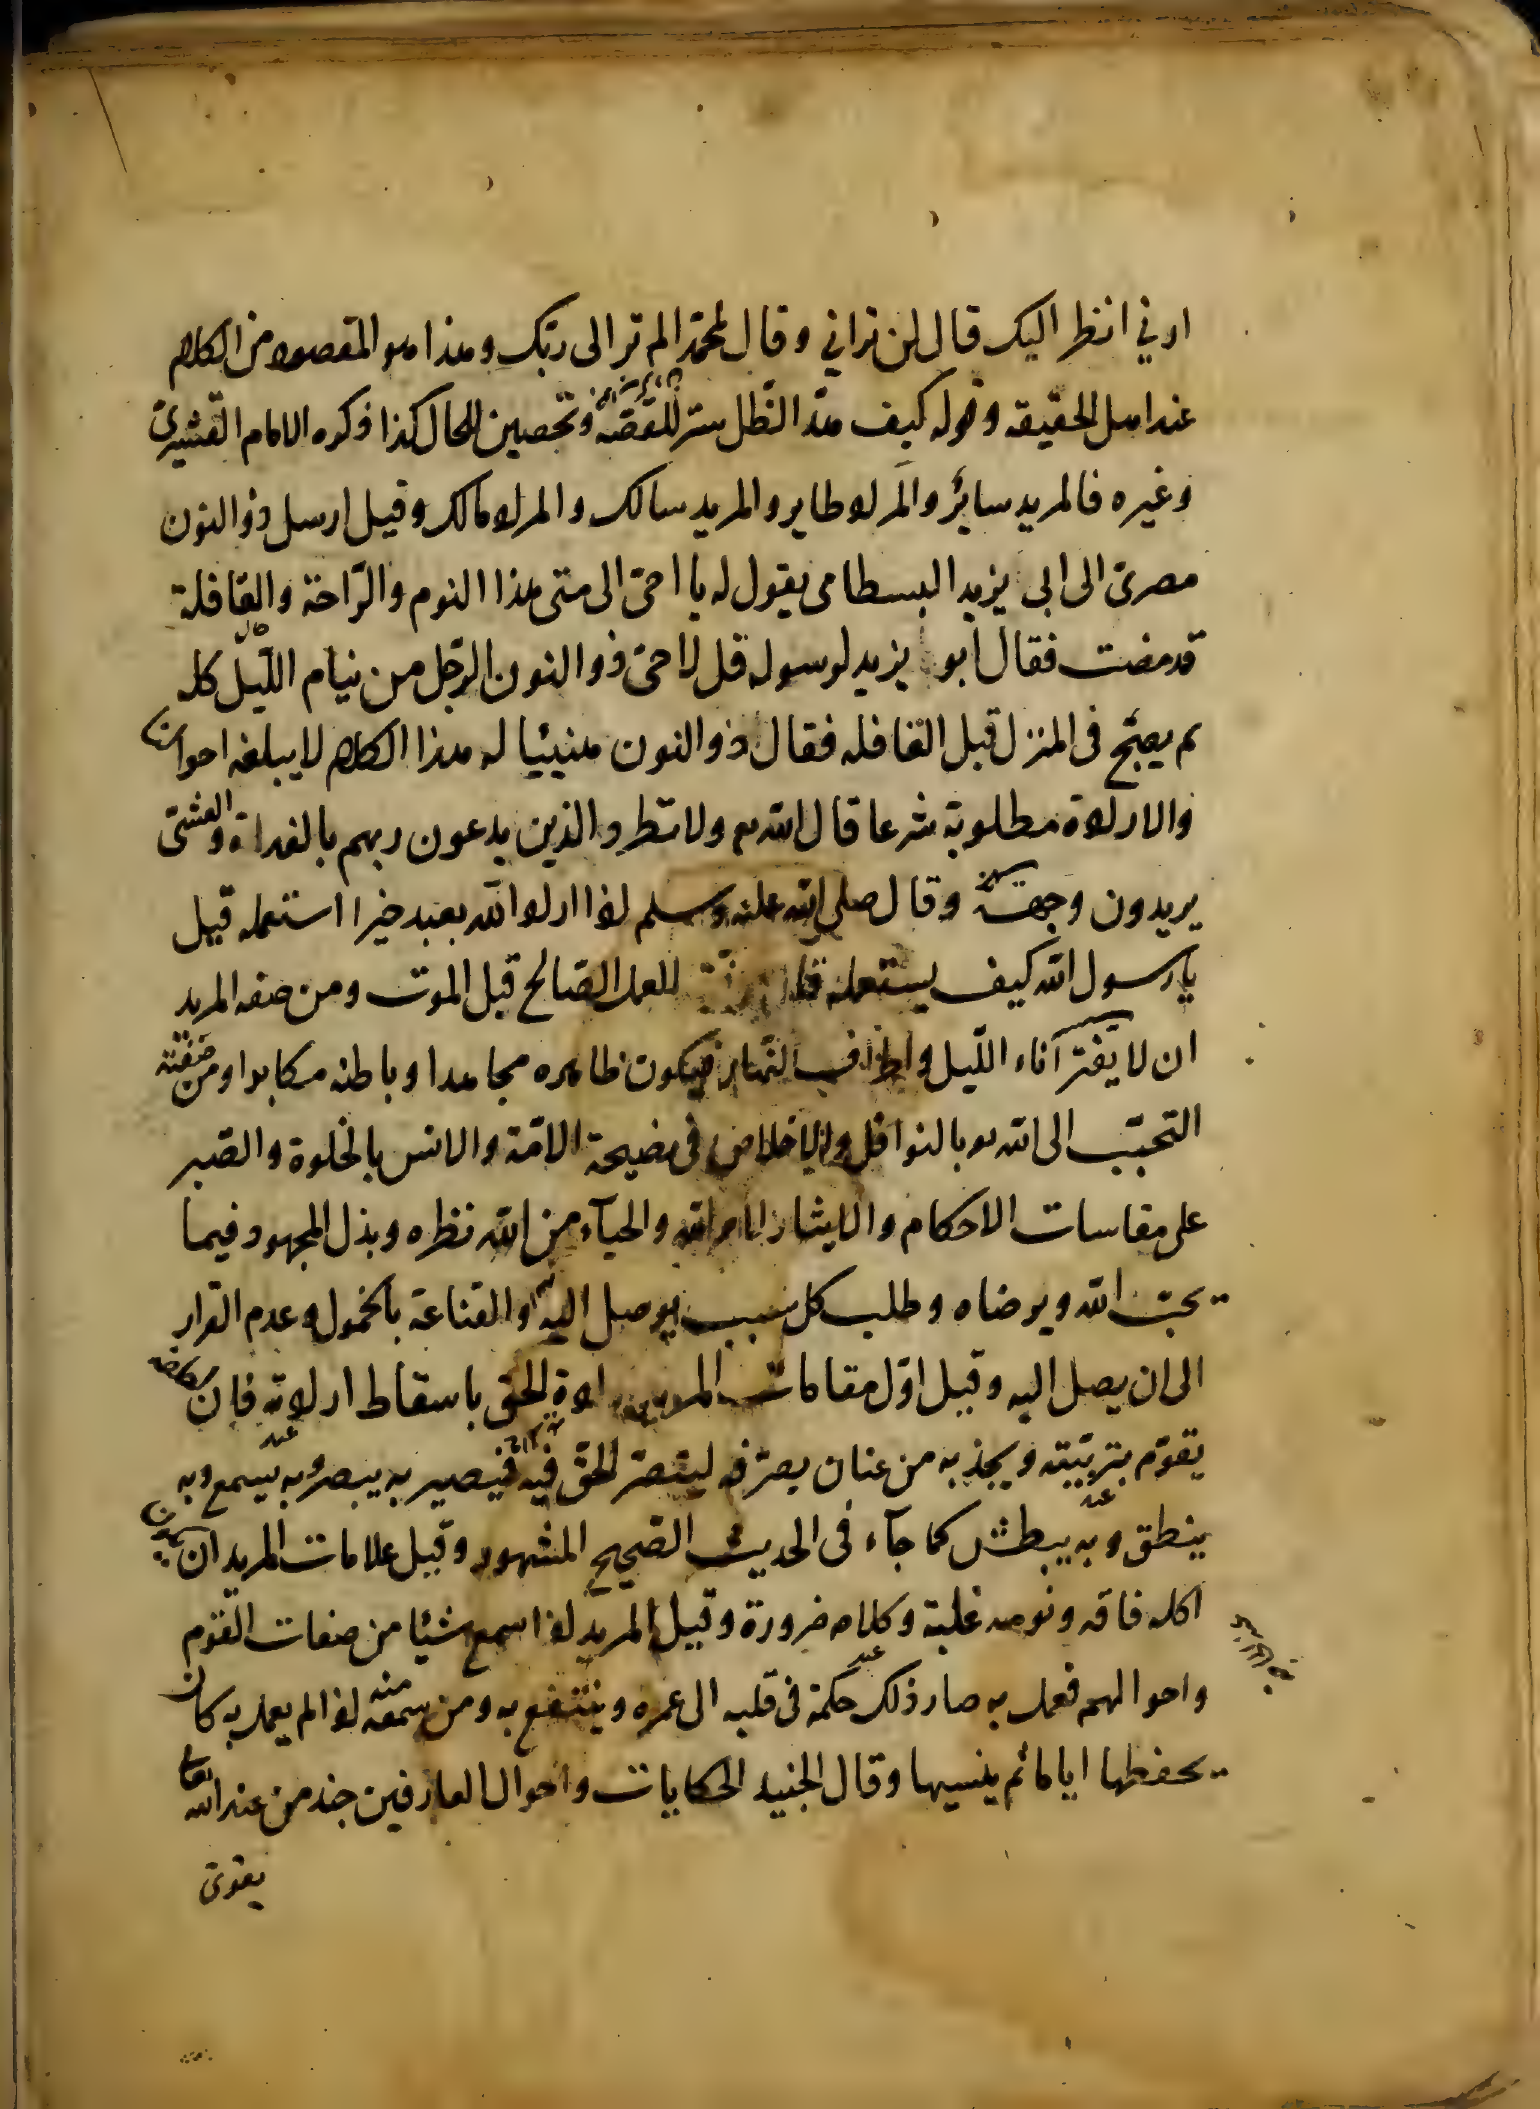 ارني انظر اليك قال لن تراني وقال لمحمد الم تر الى ربك وهذا هو المقصود من الكلام
عند اهل الحقيقه وقوله كيف مدّ الظّل ستر للقصّة وتحصين للحال كذا ذكره الامام القشيرىّ
وغيره فالمريد سائر والمراد طاير والمريد سالك والمراد مالك وقيل ارسل ذو النون
مصرى الى ابى يزيد البسطامى يقول له يا اخى الى متى هذا النوم والرّاحة والقافلة
قد مضت فقال ابو يزيد لرسوله قل لاخى ذو النون الرّجل من ينام اللّيل كله
ثم يصبح فى المنزل قبل القافله فقال ذو النون هنيئيا له هذا الكلام لا يبلغه احوالنا
والارادة مطلوبة شرعا قال الله تع ولا تطرد الذين يدعون ربهم بالغداة والعشىّ
يريدون وجهه وقال صلى الله عليه وسلم اذا اراد الله بعبد خيرا استعمله قيل
يا رسول الله كيف يستعمله قال للعمل الصّالح قبل الموت ومن صفه المريد
ان لا يفتر آناء اللّيل واطراف النّهار فيكون ظاهره مجاهدا وباطنه مكابدا ومن صفته
التحبّب الى الله تع بالنوافل والاخلاص فى نصيحة الامّة والانس بالخلوة والصّبر
على مقاسات الاحكام والايثار لامر الله والحيآء من الله نظره وبذل المجهود فيما
يحبّ الله ويرضاه وطلب كل سبب يوصل اليه والقناعة بالخمول وعدم القرار
الى ان يصل اليه وقيل اوّل مقامات المريد ارادة الحق باسقاط ارادته فان
يقوّم بتربيّته ويجذبه من عنان بصرفه ليتصرّ الحقّ فيه فيصير به يبصر وبه يسمع وبه
ينطق وبه يبطش كما جآء فى الحديث الصّحيح المشهور وقيل علامات المريد ان يكون
اكله فاقه ونومه غلبة وكلامه ضرورة وقيل المريد اذا سمع شيئا من صفات القوم
واحوالهم فعمل به صار ذلك حكمة فى قلبه الى عمره وينتفع به ومن سمعه منه اذا لم يعمل به كان
يحفظها اياما ثم ينسيها وقال الجنيد الحكايات واحوال العارفين جند من عند الله تعالى
يقوى